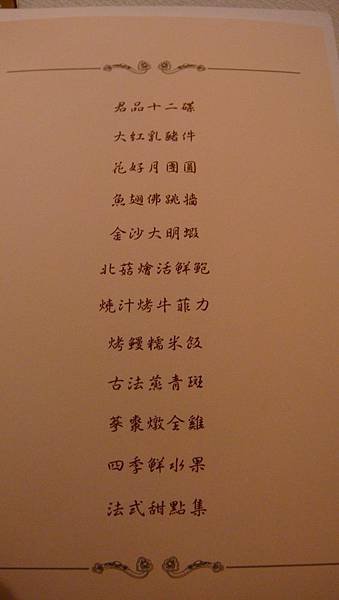 君品十二碟
大紅乳豬件
花好月團圓
魚翅佛跳牆
金沙大明蝦
北菇燴活鮮鮑
燒汁烤牛菲力
烤鰻糯米飯
古法蒸青斑
蔘棗燉全雞
四季鮮水果
法式甜點集